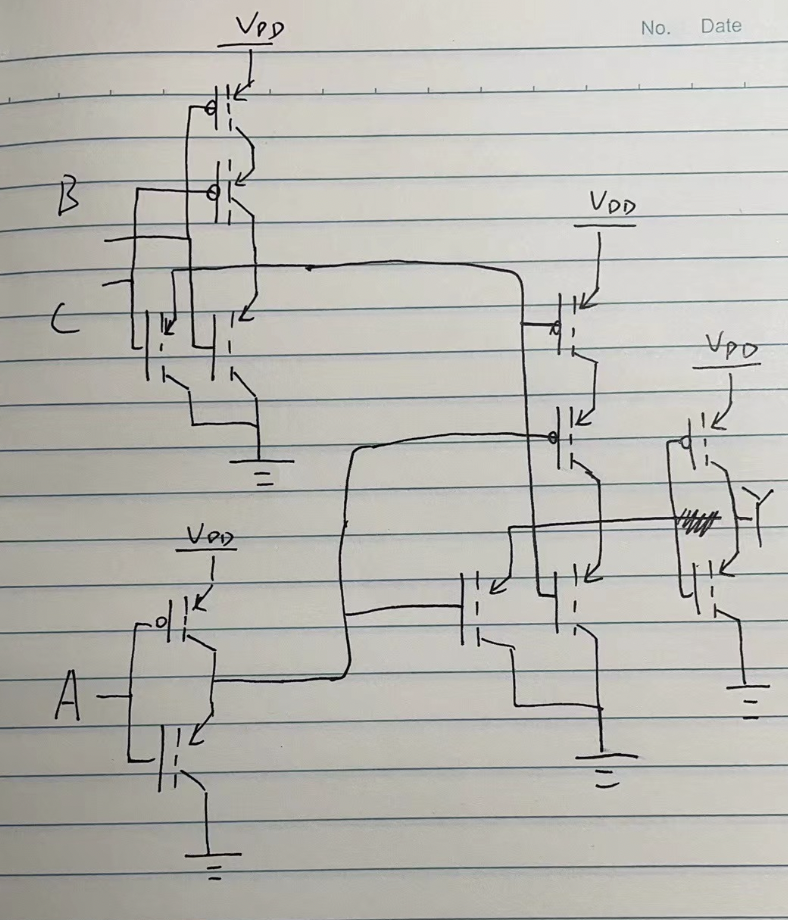 No. Date
VDD
B
VDD
C
VDD
VDD
Y
A